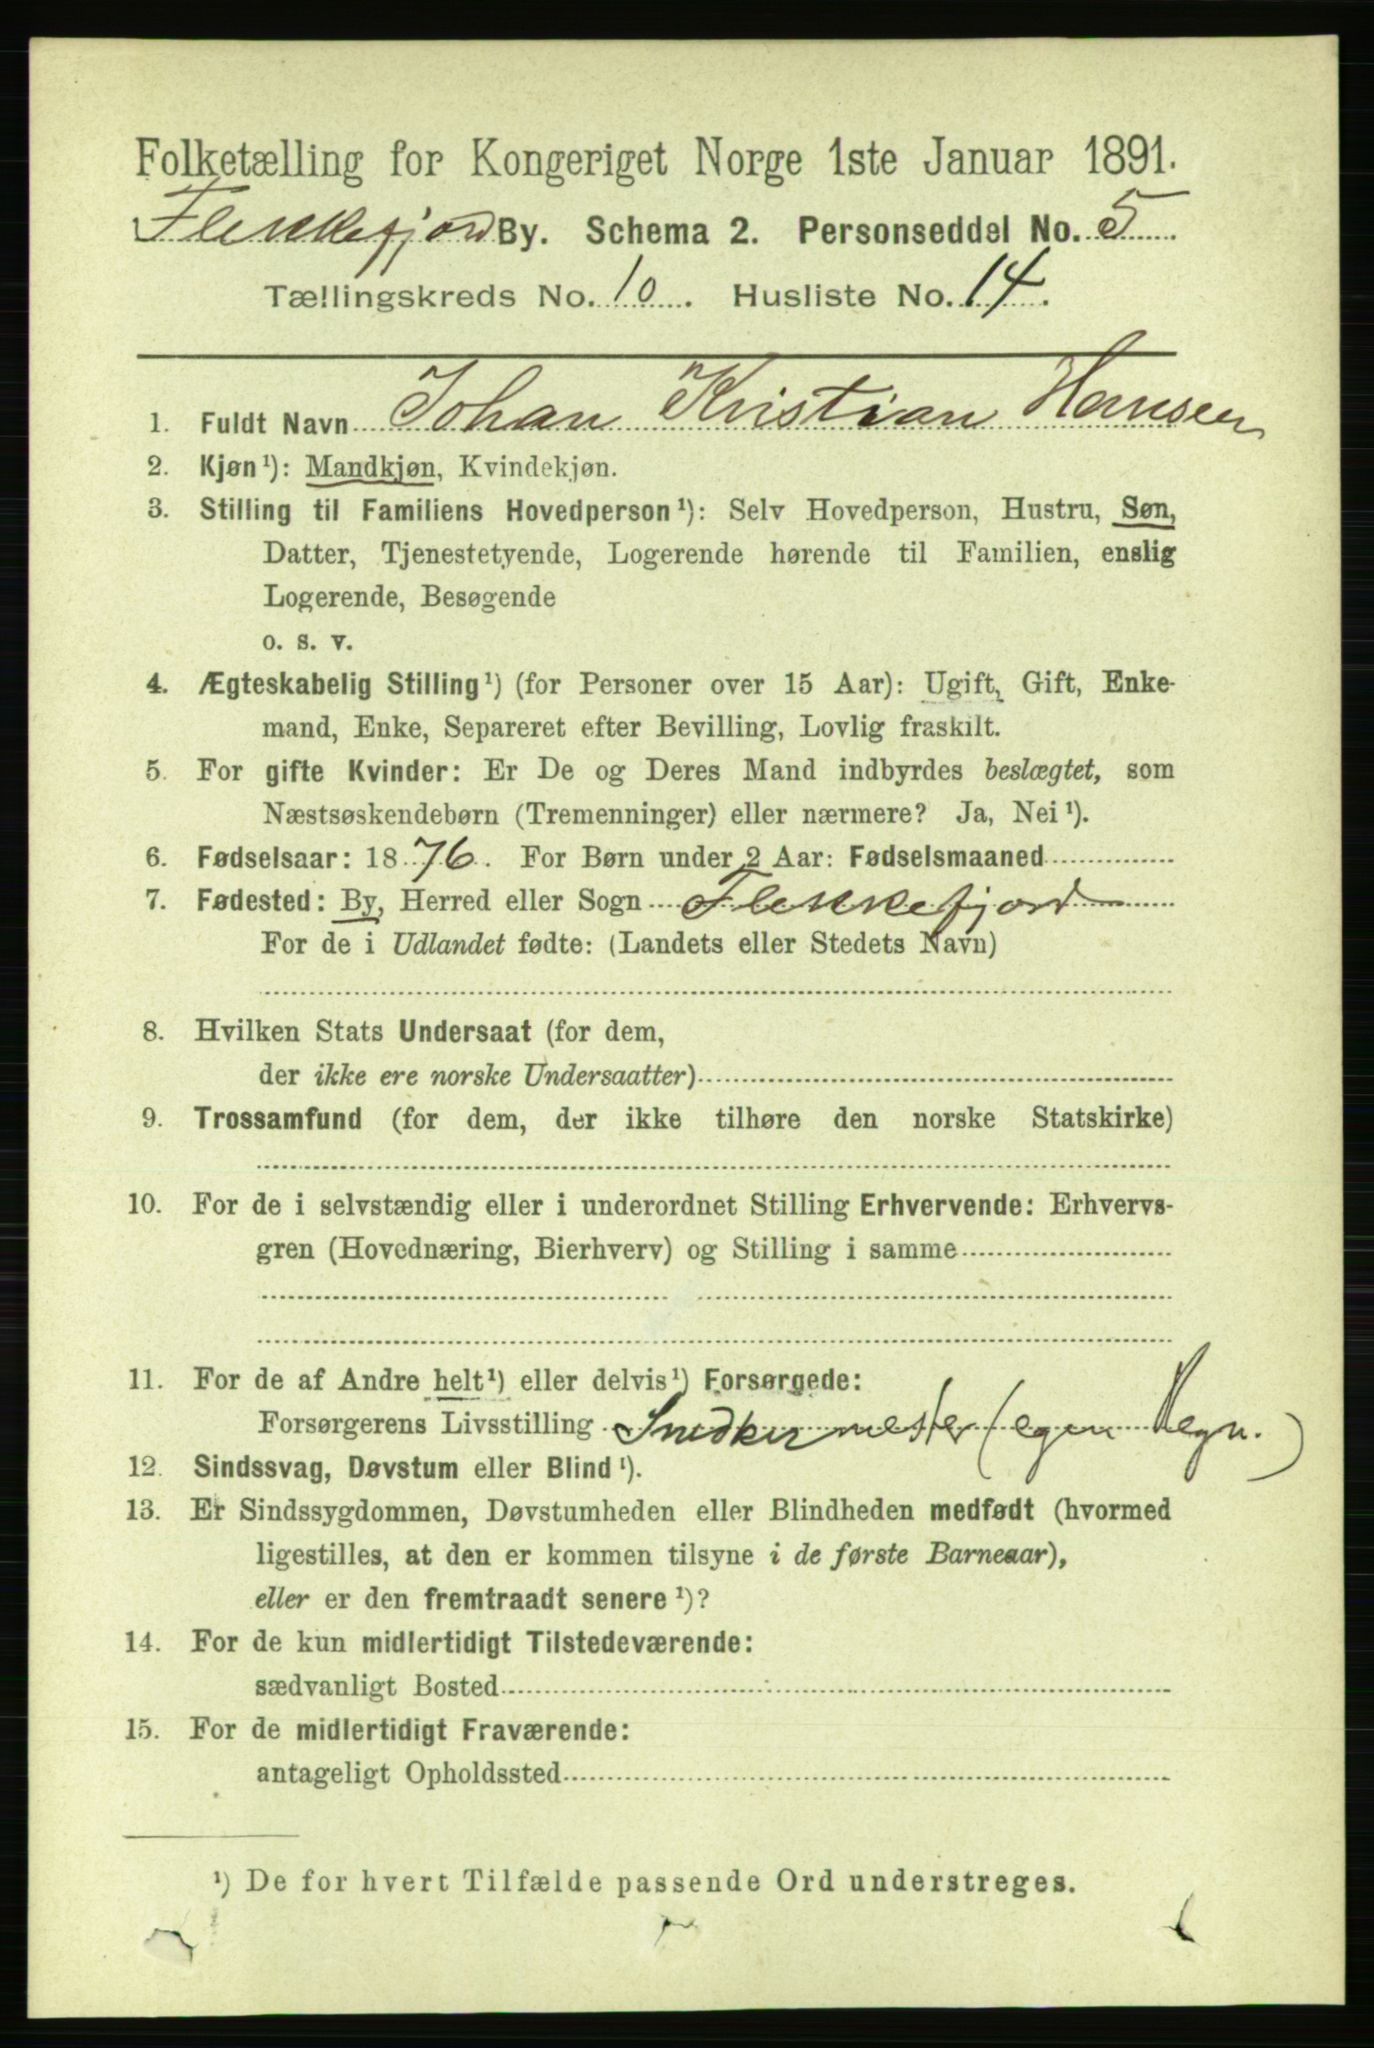 Folketælling for Kongeriget Norge 1ste Januar 1891.
Flekkefjord By. Schema 2. Personseddel No. 5
Tællingskreds No. 10. Husliste No. 14.
1. Fuldt Navn Johan Kristian Hansen
2. Kjøn¹): Mandkjøn, Kvindekjøn.
3. Stilling til Familiens Hovedperson¹): Selv Hovedperson, Hustru, Søn,
Datter, Tjenestetyende, Logerende hørende til Familien, enslig
Logerende, Besøgende
o. s. v.
4. Ægteskabelig Stilling¹) (for Personer over 15 Aar): Ugift, Gift, Enke-
mand, Enke, Separeret efter Bevilling, Lovlig fraskilt.
5. For gifte Kvinder: Er De og Deres Mand indbyrdes beslægtet, som
Næstsøskendebørn (Tremenninger) eller nærmere? Ja, Nei¹).
6. Fødselsaar: 1876. For Børn under 2 Aar: Fødselsmaaned
7. Fødested: By, Herred eller Sogn Flekkefjord
For de i Udlandet fødte: (Landets eller Stedets Navn)
8. Hvilken Stats Undersaat (for dem,
der ikke ere norske Undersaatter)
9. Trossamfund (for dem, der ikke tilhøre den norske Statskirke)
10. For de i selvstændig eller i underordnet Stilling Erhvervende: Erhvervs-
gren (Hovednæring, Bierhverv) og Stilling i samme
11. For de af Andre helt¹) eller delvis¹) Forsørgede:
Forsørgerens Livsstilling Snedkermester (egen Regn.)
12. Sindssvag, Døvstum eller Blind¹).
13. Er Sindssygdommen, Døvstumheden eller Blindheden medfødt (hvormed
ligestilles, at den er kommen tilsyne i de første Barneaar),
eller er den fremtraadt senere¹)?
14. For de kun midlertidigt Tilstedeværende:
sædvanligt Bosted
15. For de midlertidigt Fraværende:
antageligt Opholdssted
¹) De for hvert Tilfælde passende Ord understreges.